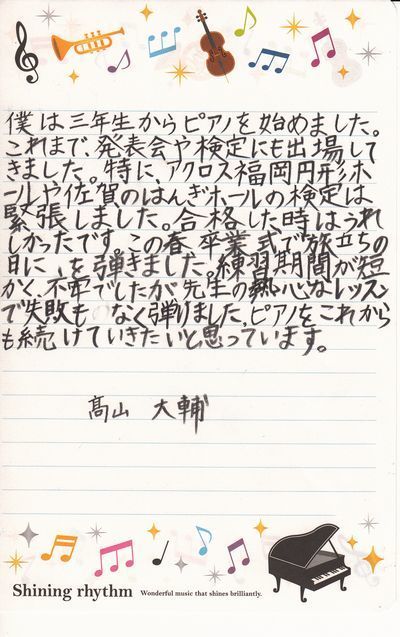 僕は三年生からピアノを始めました。
これまで、発表会や検定にも出場して
きました。特に、アクロス福岡円形ホ
ールや佐賀のはんぎホールの検定は
緊張しました。合格した時はうれ
しかったです。この春 卒業式で旅立ちの
日に、を弾きました。練習期間が短
かく、不安でしたが先生の熱心なレッスン
で失敗も なく弾けました。ピアノをこれから
も続けていきたいと思っています。
髙山 大輔
Shining rhythm Wonderful music that shines brilliantly.